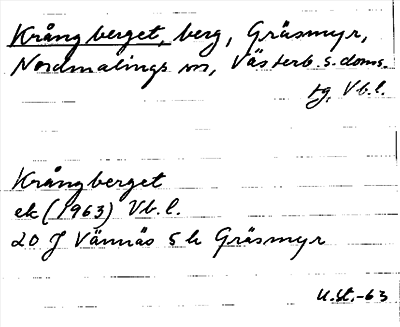 Krångberget, berg, Gräsmyr,
Nordmalings sn, Västerb. s. doms.
tg, Vb. l.
Krångberget
ek (1963) Vb. l.
20 J Vännäs 5 h Gräsmyr
U.st.-63